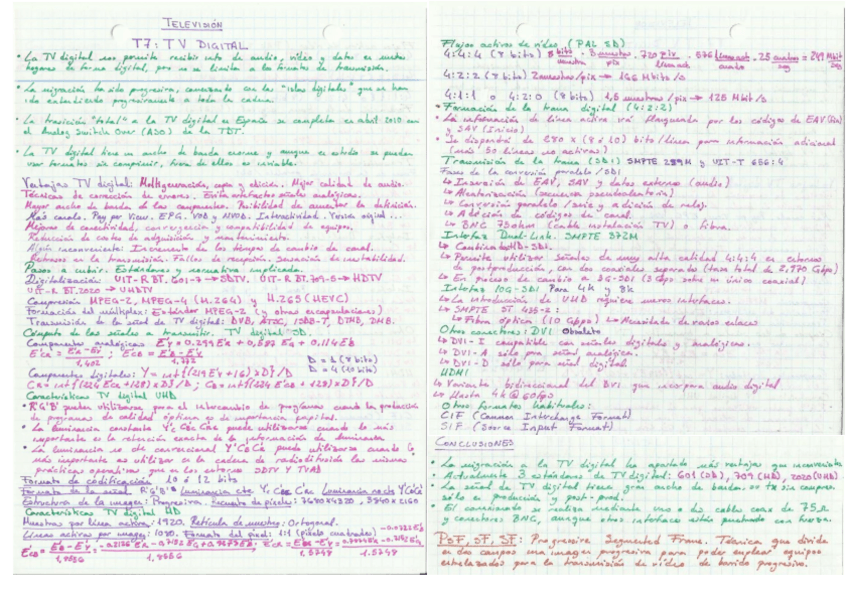 TELEVISIÓN
T7: TV DIGITAL
• La TV digital nos permite recibir tanto de audio, vídeo y datos en nuestros
hogares en forma digital, pero no se limita a los formatos de transmisión.
• La migración ha sido progresiva, comenzando con las "islas digitales" que se han
ido extendiendo progresivamente a toda la cadena.
• La transición "total" a la TV digital en España se completa en abril 2010 con
el Analog Switch Over (ASO) de la TDT.
• La TV digital tiene un ancho de banda enorme y aunque en estudio se pueden
usar formatos sin comprimir, fuera de ellos es inviable.
Ventajas TV digital: Multigeneración, copia y edición. Mejor calidad de audio.
Técnicas de corrección de errores. Envía watios/señales analógicas.
Mayor ancho de banda de las componentes. Posibilidad de aumentar la definición.
Más canales. Pay per View. EPG. VOD y NVOD. Interactividad. Versión digital...
Mejores de conectividad, convergencia y compatibilidad de equipos.
Reducción de costes de adquisición y mantenimiento.
Algún inconveniente: Incremento de los tiempos de cambio de canal.
Retrasos en la transmisión. Fallos de recepción. Sensación de inestabilidad.
Pasos a cubrir. Estándares y normativa implicada.
Digitalización: UIT-R BT.601-7 → SDTV. UIT-R BT.709-5 → HDTV
UIT-R BT.2020 → UHDTV
Compresión MPEG-2, MPEG-4 (H.264) y H.265 (HEVC)
Formación del múltiplex: Estándar MPEG-2 (y otras encapsulaciones)
Transmisión de la señal de TV digital: DVB, ATSC, ISDB-T, DTMB, DMB.
Cómputo de las señales a transmitir. TV digital SD.
Componentes analógicas E'y = 0.299 E'R + 0,587 E'G + 0.114 E'B
Componentes digitales: Y = int{(219 E'y + 16) x D} / D
CR = int{(224 E'CR + 128) x D} / D; CB = int{(224 E'CB + 128) x D} / D
D = 1 (8 bits)
D = 4 (10 bits)
Características TV digital UHD
• R'G'B' pueden utilizarse para el intercambio de programas cuando la producción
de programas de calidad óptima es de importancia capital.
• La luminancia constante Y'c C'BC C'RC puede utilizarse cuando lo más
importante es la retención exacta de la información de luminancia
• La luminancia no cte correccional Y'C'BC'R puede utilizarse cuando lo
más importante es utilizar en la cadena de radiodifusión las mismas
prácticas operativas que en los entornos SDTV y TVAD
Formato de codificación 10 ó 12 bits
Estructura de la imagen: Progresiva. Recuento de píxels: 7680x4320, 3840x2160
Características TV digital HD
Muestras por línea activa: 1920. Retícula de muestreo: Ortogonal.
Líneas activas por imagen: 1080. Formato del píxel: 1:1 (píxels cuadrados)
Flujos activos de vídeo (PAL SD)
4:2:2 (8 bits) 2 muestras/pix → 166 Mbit/s
4:1:1 o 4:2:0 (8 bits) 1,5 muestras/pix → 125 Mbit/s
• Formación de la trama digital (4:2:2)
• La información de línea activa irá flanqueada por los códigos de EAV (Fin)
y SAV (Inicio)
• Se dispondrá de 280 x (8 ó 10) bits/línea para información adicional
(más 50 líneas no activas)
Transmisión de la trama (SDI) SMPTE 259M y UIT-T 656-4
Fases de la conversión paralelo/SDI
↳ Inserción de EAV, SAV y datos externos (audio)
↳ Aleatorización (secuencia pseudoaleatoria)
↳ Conversión paralelo/serie y adición de reloj.
↳ Adición de códigos de canal.
↳ BNC 75 ohm (cable instalación TV) o fibra.
Interfaz Dual-Link. SMPTE 372M
↳ Combina dos HD-SDI.
↳ Permite utilizar señales de muy alta calidad 4:4:4 en entornos
de postproducción, con dos coaxiales separados (tasa total de 2,970 Gbps)
↳ En proceso de cambio a 3G-SDI (3 Gbps sobre un único coaxial)
Interfaz 10G-SDI Para 4K y 8K
↳ La introducción de UHD requiere nuevos interfaces.
↳ SMPTE ST 435-2:
↳ Fibra óptica (10 Gbps) ↳ Necesidad de varios enlaces
Otros conectores: DVI Obsoleto
↳ DVI-I compatible con señales digitales y analógicas.
↳ DVI-A sólo para señal analógica.
↳ DVI-D sólo para señal digital.
HDMI
↳ Variante bidireccional del DVI que incorpora audio digital
↳ Hasta 4K @ 60fps
Otros formatos habituales:
CIF (Common Interchange Format)
SIF (Source Input Format)
CONCLUSIONES
• La migración a la TV digital ha aportado más ventajas que inconvenientes
• Actualmente 3 estándares de TV digital: 601 (SD), 709 (HD), 2020 (UHD)
• La señal de TV digital tiene gran ancho de banda: su tx sin compr.
sólo en producción y post-prod.
• El conexionado se realiza mediante uno o dos cables coax de 75Ω
y conectores BNC, aunque otros interfaces están entrando con fuerza.
PSF, sF, SF: Progressive Segmented Frame. Técnica que divide
en dos campos una imagen progresiva para poder emplear equipos
entrelazados para la transmisión de vídeo de barrido progresivo.